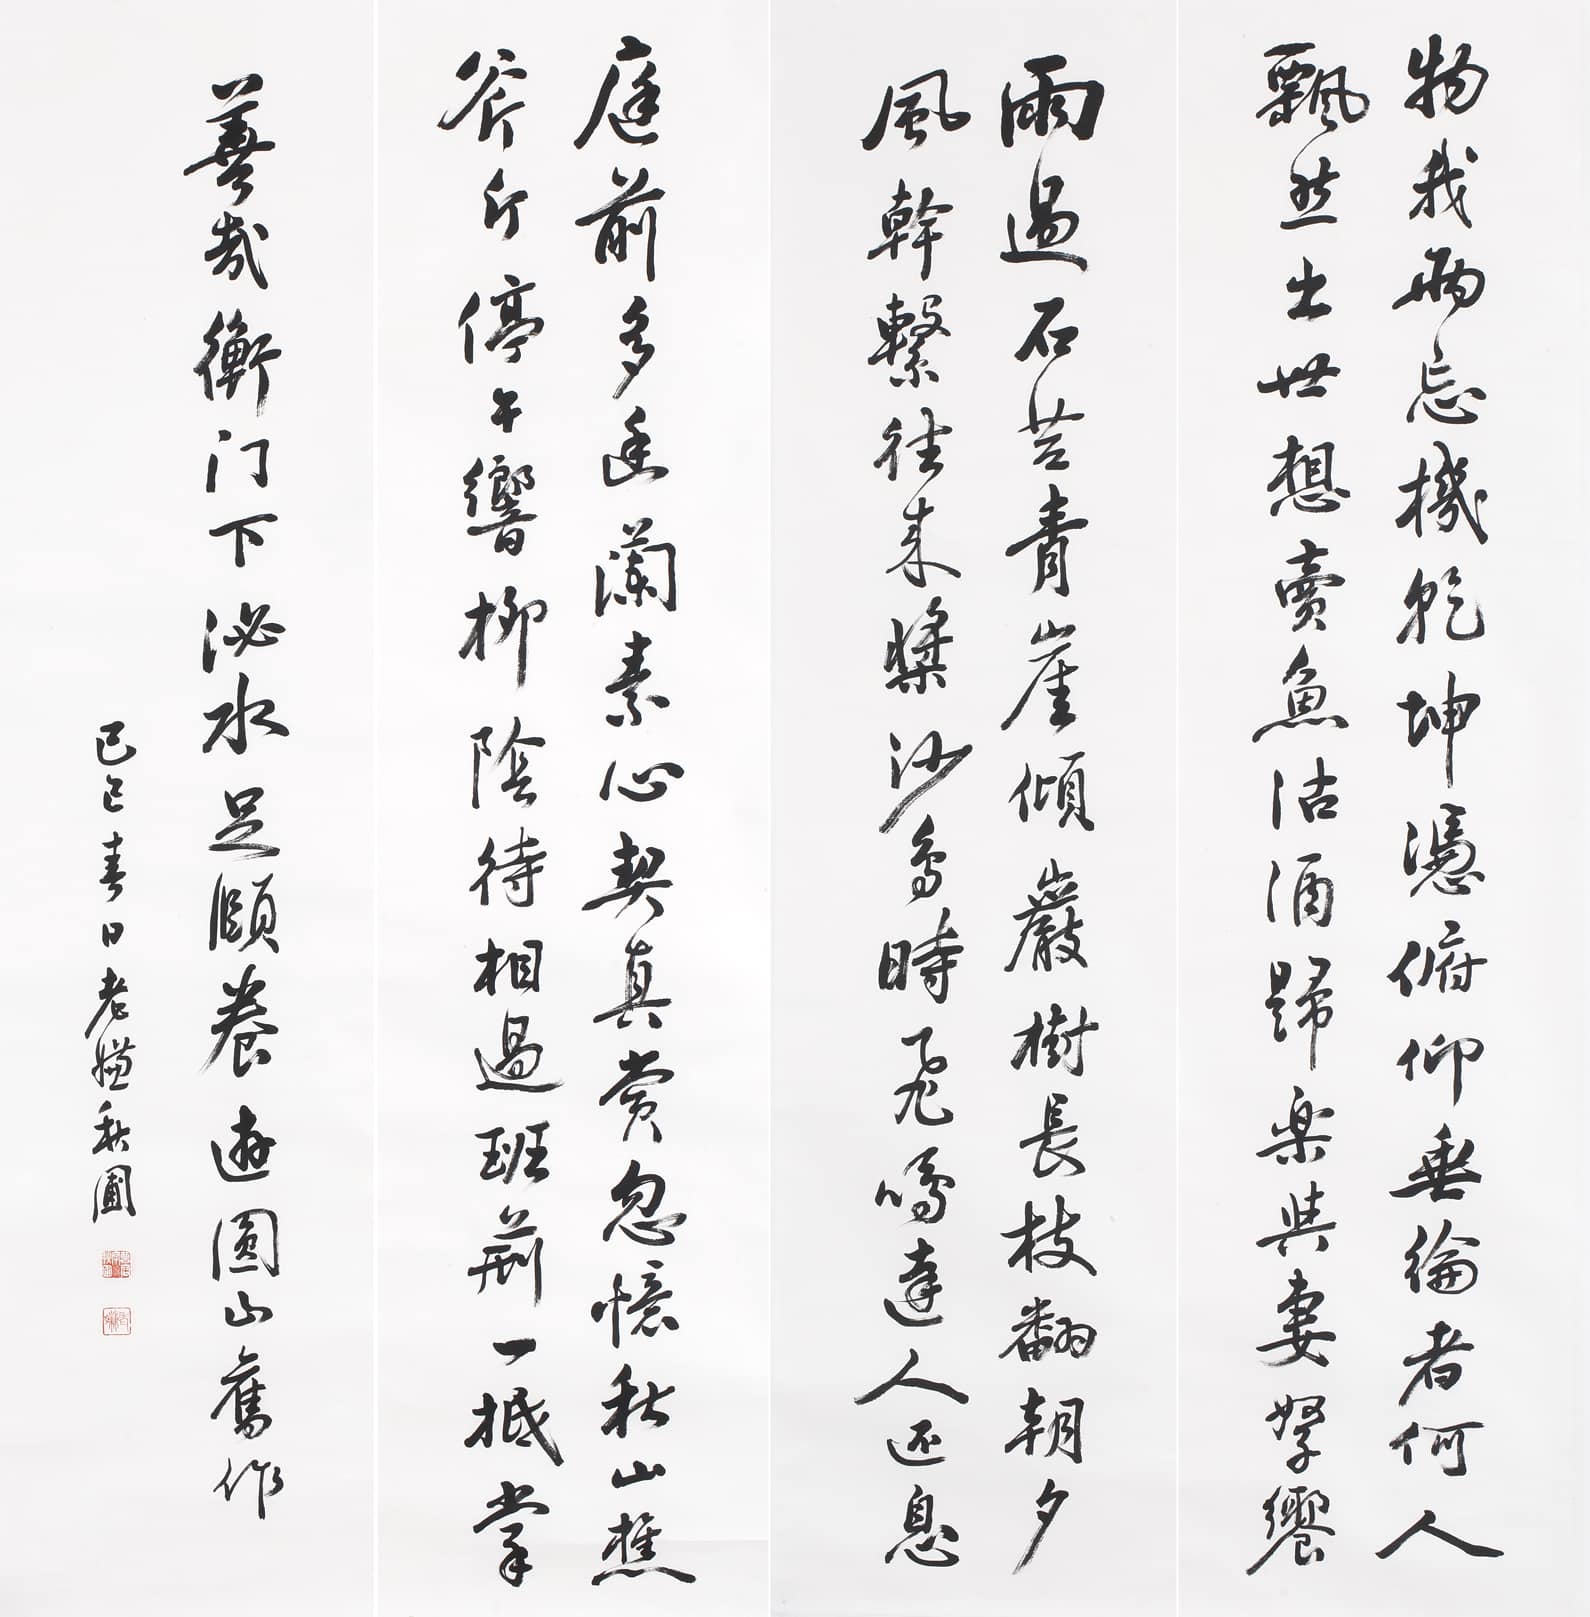 物我兩忘機乾坤憑俯仰垂綸者何人
飄然出世想賣魚沽酒歸楽與妻孥饗
雨過石苔青崖傾巖樹長枝翻朝夕
風幹繫往來槳沙鳥時飛鳴達人还息
庭前多逕蘭素心契真賞忽憶秋山樵
斧斤停午響柳陰待相過班荊一抵掌
善哉衡门下泌水足頤養遊圓山舊作
己巳春日老嫌秋圃